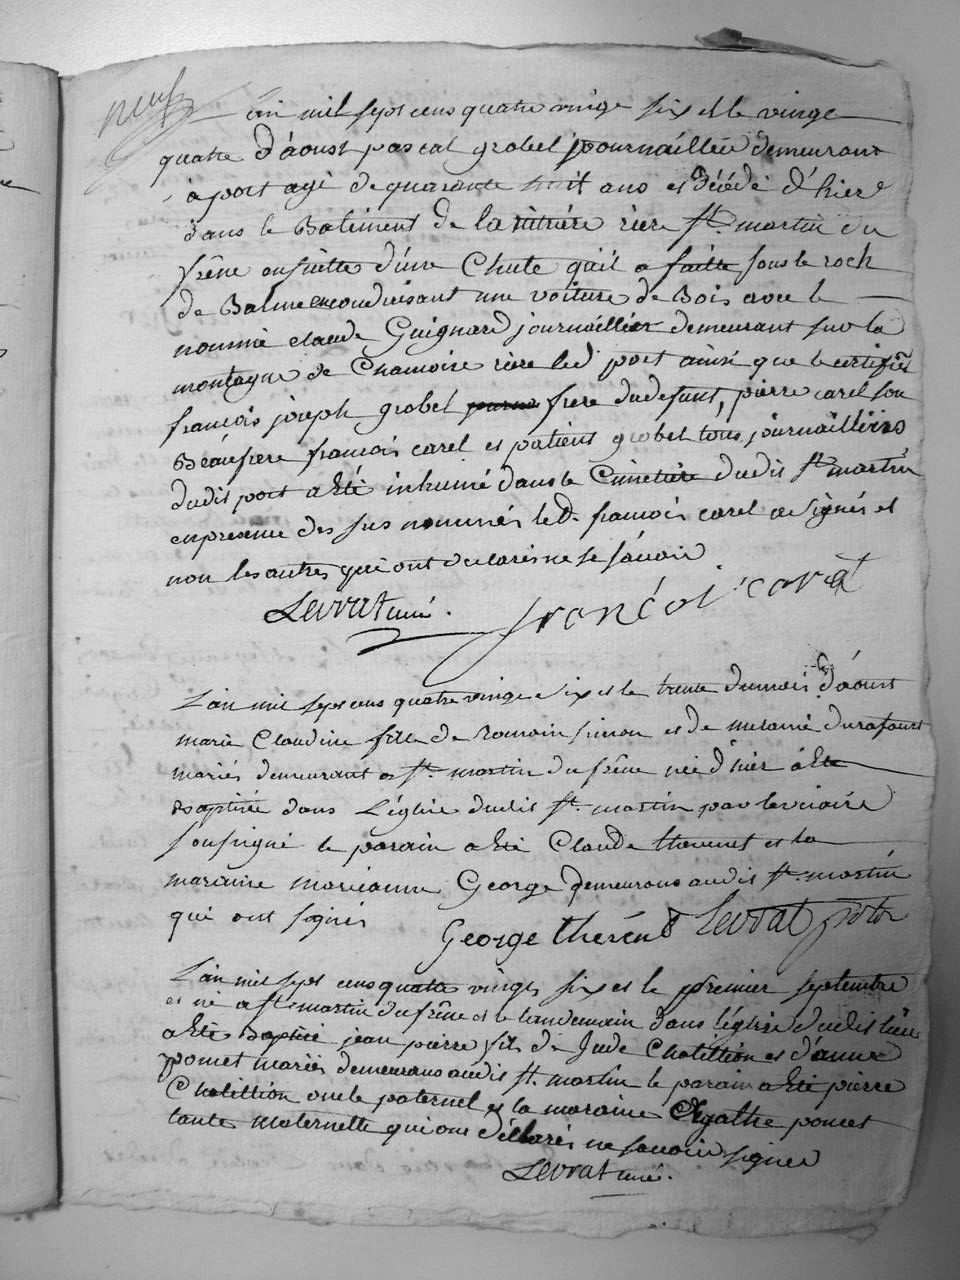 neuf
L'an mil sept cens quatre vingt six et le vingt
quatre d'aoust pascal grobel journaillier demeurant
à port agé de quarante huit ans est décédé d'hier
dans le Batiment de la rière St. martin du
frêne ensuitte d'une Chute quil a faitte sous le roch
de Balme en conduisant une voiture de Bois avec le
nommé claude Guignard journaillier demeurant sur la
montagne de Chamoise rière led port ainsi que le certifiés
françois joseph grobel frere du defunt, pierre carel son
Beaufrere françois carel et patient grobel tous journailliers
dudit port a Eté inhumé dans le Cimetière dudit St. martin
en présence des sus nommés led. françois carel a signés et
non les autres qui ont declarés ne le sávoir
Levrat curé. françois carel
L'an mil sept cens quatre vingt six et le trente du mois d'áoust
marie Claudine fille de romain simon et de melanie durafourt
mariés demeurant a St. martin du frêne née d'hier à Eté
Baptisée dans L'église dudit St. martin par le vicaire
soussigné le parain a Eté Claude thevenet et la
maraine marianne George demeurans audit St. martin
qui ont signés
George Levrat
L'an mil sept cens quatre vingt six et le premier septembre
est né a St. martin du frêne et le landemain dans l'église dudit lieu
a Eté Baptisé jean pierre fils de Jude Chatillion et d'anne
poncet mariés demeurans audit St. martin le parain a Eté pierre
Chatillion oncle paternel et la maraine Agathe poncet
tante maternelle qui ont déclarés ne savoir signer
Levrat curé.